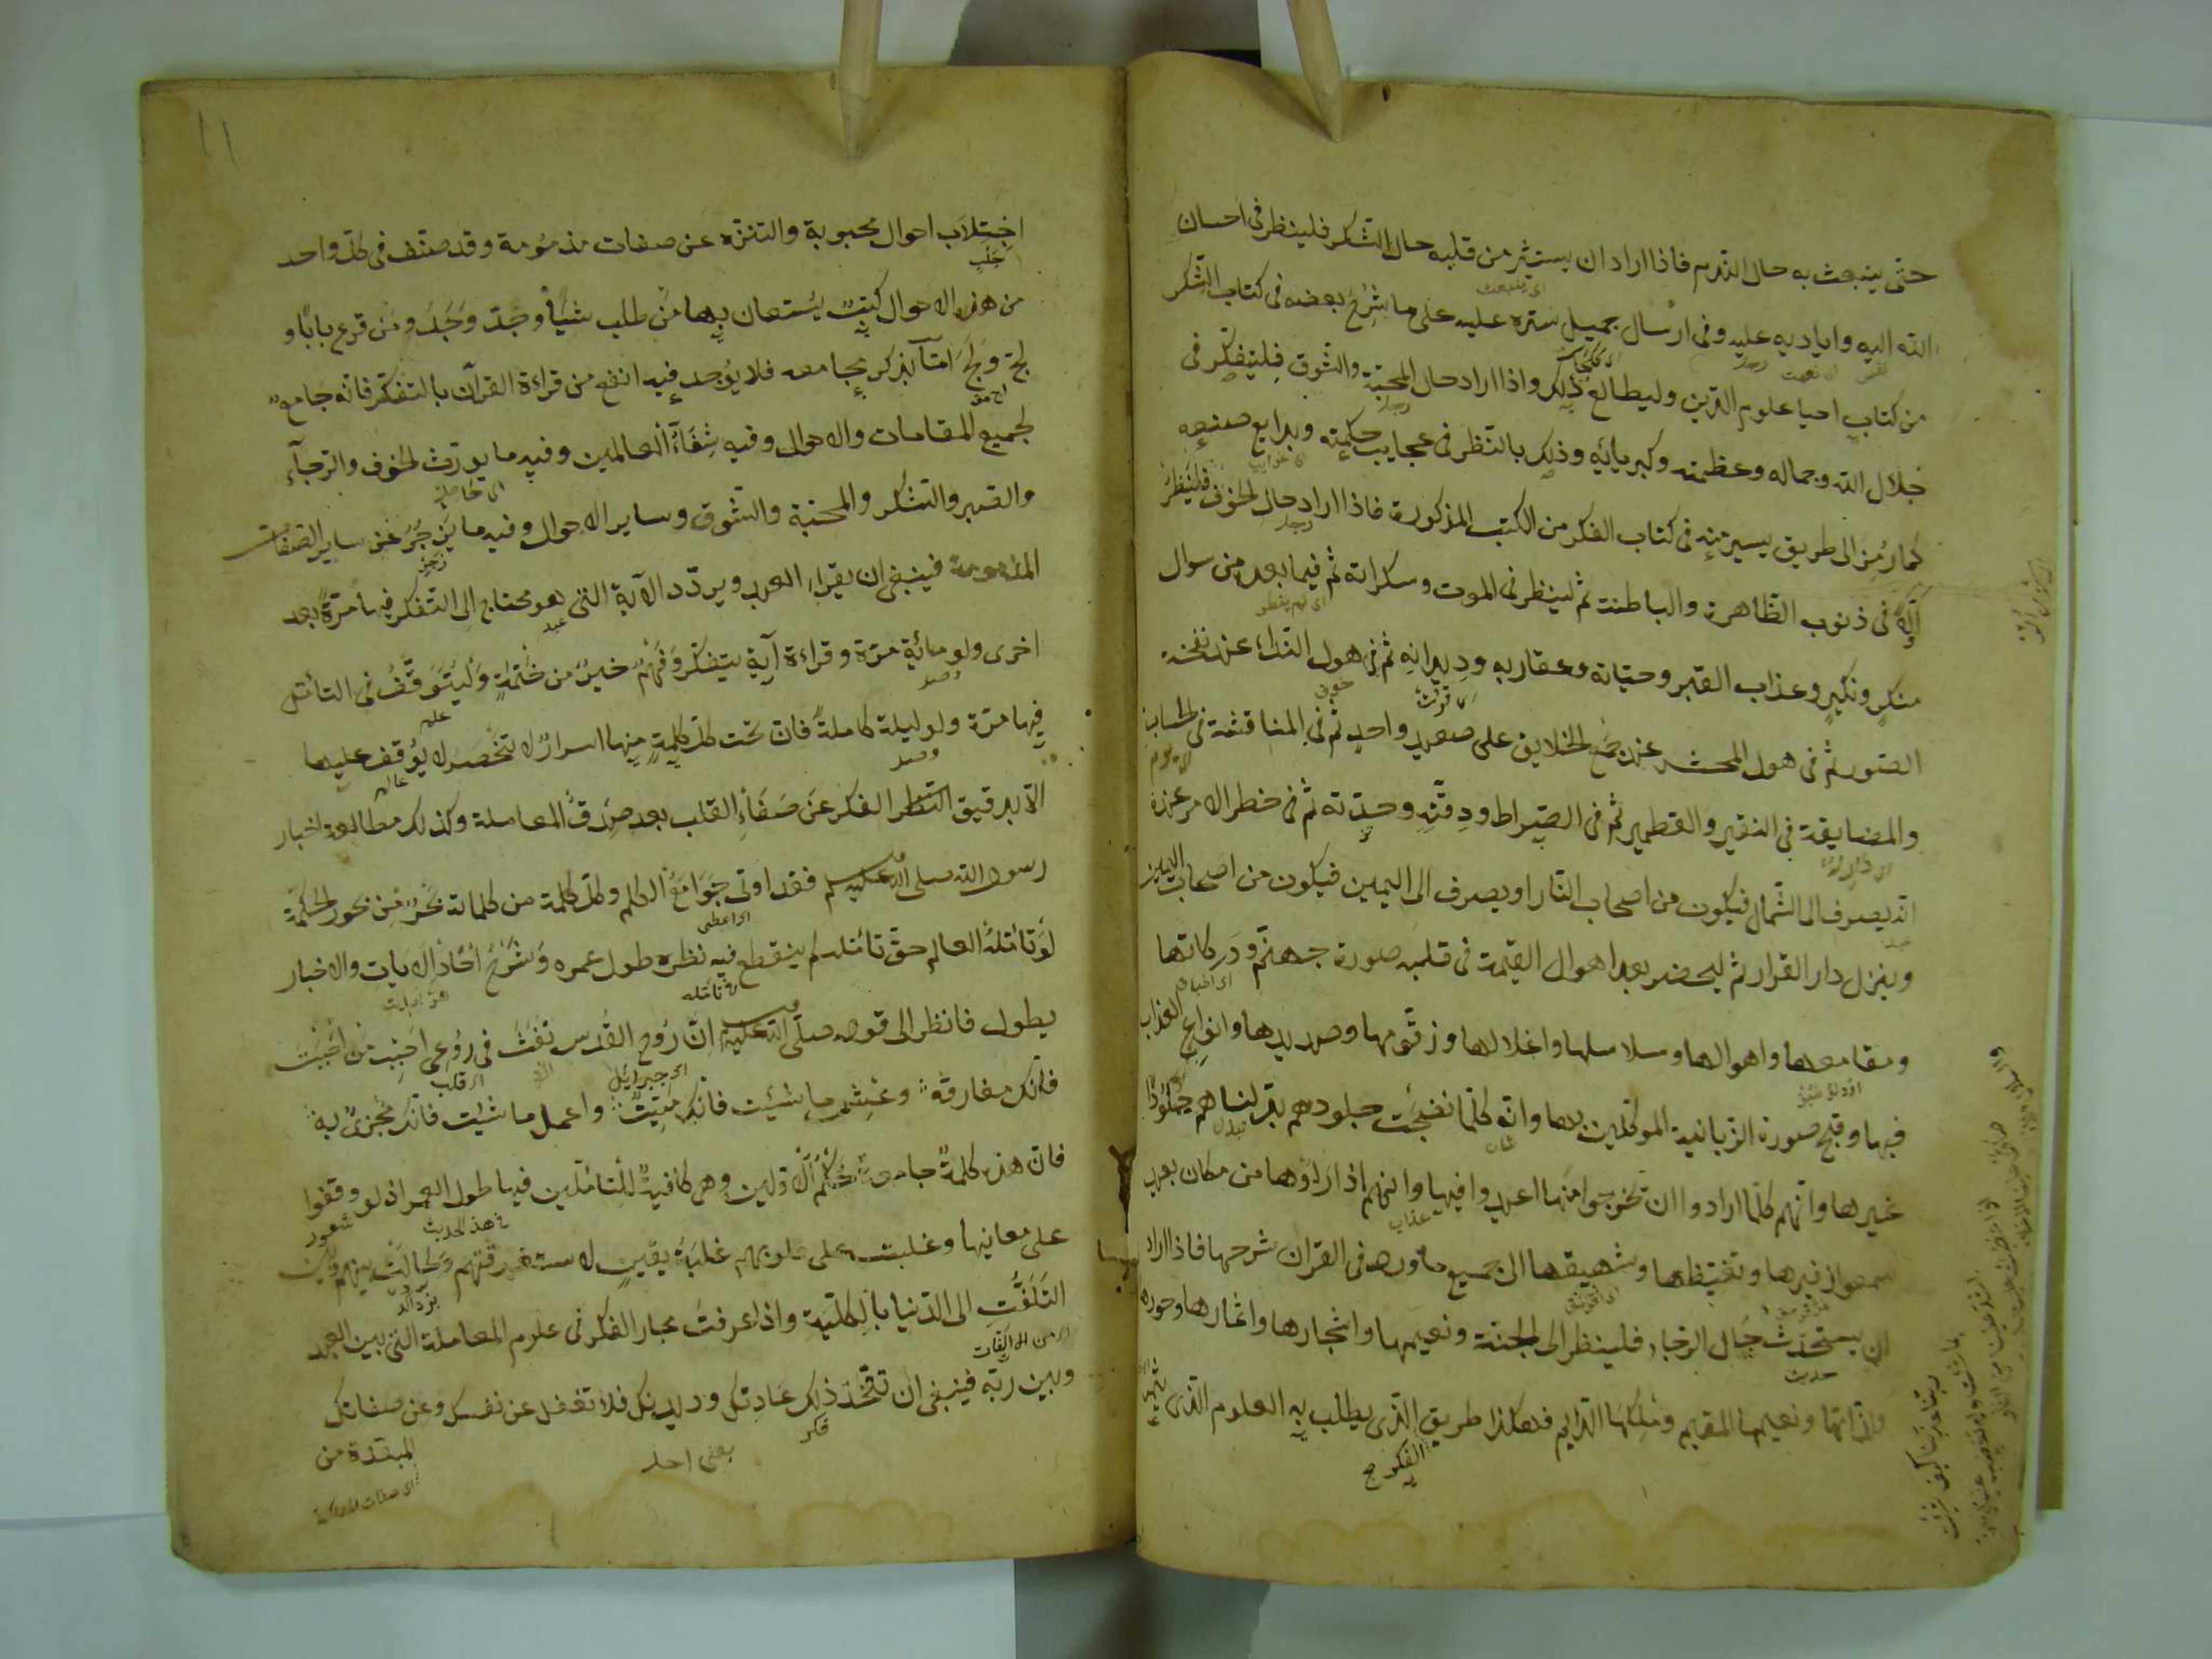 حتى ينبعث به حال الندم فاذا اراد ان يستثير من قلبه حال الشكر فلينظر في احسان
الله اليه واياديه عليه وفي ارسال جميل ستره عليه على ما شرح بعضه في كتاب الشكر
من كتاب احيا علوم الدين وليطالع ذلك واذا اراد حال المحبة والشوق فليتفكر في
جلال الله وجماله وعظمته وكبريائه وذلك بالنظر في عجايب حكمته وبدايع صنعه
كما رمز الى طريق يسير منه في كتاب الفكر من الكتب المذكورة فاذا اراد حال الخوف فلينظر
في ذنوب الظاهرة والباطنة ثم لينظر في الموت وسكراته ثم فيما بعد من سوال
منكر ونكير وعذاب القبر وحياته وعقاربه وديدانه ثم في هول النداء عند نفخة
الصور ثم في هول المحشر عند جمع الخلايق على صعيد واحد ثم في المناقشة في الحساب
والمضايقة في النقير والقطمير ثم في الصراط ودقته وحدته ثم في خطر الامر عنده
انه يصرف الى الشمال فيكون من اصحاب النار او يصرف الى اليمين فيكون من اصحاب اليمين
وينزل دار القرار ثم ليحضر بعد اهوال القيمة في قلبه صورة جهنم ودركاتها
ومقامعها واهوالها وسلاسلها واغلالها وزقومها وصديدها وانواع العذاب
فيها وقبح صورة الزبانية الموكلين بها وانه كلما نضجت جلودهم بدلناهم جلودا
غيرها وانهم كلما ارادوا ان تخرجوا منها اعيدوا فيها وانهم اذا راوها من مكان بعيد
سمعوا زفيرها وتغيظها وشهيقها الى جميع ما ورد في القران شرحها فاذا اراد
ان يستحدث حال الرجاء فلينظر الى الجنة ونعيمها واشجارها وانهارها وحورها
ولذاتها ونعيمها المقيم وملكها الدايم فهكذا طريق الذي يطلب به العلوم الذي
الفكر
١١
اجتلاب احوال محبوبة والتنزه عن صفات مذمومة وقد صنف في كل واحد
من هذه الاحوال كتبت يستعان بها من طلب شيأ وجد وجد ومن قرع بابا و
لج ولج اما بذكر مجامعه فلا يوجد فيه انفع من قراءة القرآن بالتفكر فانه جامع
لجميع المقامات والاحوال وفيه شفاء العالمين وفيه ما يورث الخوف والرجآء
والصبر والشكر والمحبة والشوق وساير الاحوال وفيه ما يزجر عن ساير الصفات
المذمومة فينبغي ان يقراء العبد ويردد الآية التي هو محتاج الى التفكر فيها مرة بعد
اخرى ولو مائة مرة وقراءة آية بتفكر وفهم خير من ختمة وليتوقف في التأمل
فيها مرة ولو ليلة كاملة فان تحت كل كلمة منها اسرار لا تنحصر لا يوقف عليها
الا بدقيق النظر الفكر عن صفاء القلب بعد صدق المعاملة وكذلك مطالعة اخبار
رسول الله صلى الله عليه وسلم فقد اوتى جوامع الكلم وكل كلمة من كلماته بحر من بحور الحكمة
لو تامله العالم حق تامله لم ينقطع فيه نظره طول عمره وشرح احاد الايات والاخبار
يطول فانظر الى قوله صلى الله عليه ان روح القدس نفث في روعي احبب من احببت
فانك مفارقه وعش ما شئت فانك ميت واعمل ما شئت فانك مجزى به
فان هذه كلمة جامعة حكم الاولين وهي كافية للمتأملين فيها طول العمر اذ لو وقفوا
على معانيها وغلبت على قلوبهم غلبة يقين لاستغرقتهم وحالت بينهم وبين
التلفت الى الدنيا بالكلية واذا عرفت مجار الفكر في علوم المعاملة التي بين العبد
وبين ربه فينبغي ان تتخذ ذلك عادتك وديدنك فلا تغفل عن نفسك وعن صفاتك
المبعدة من